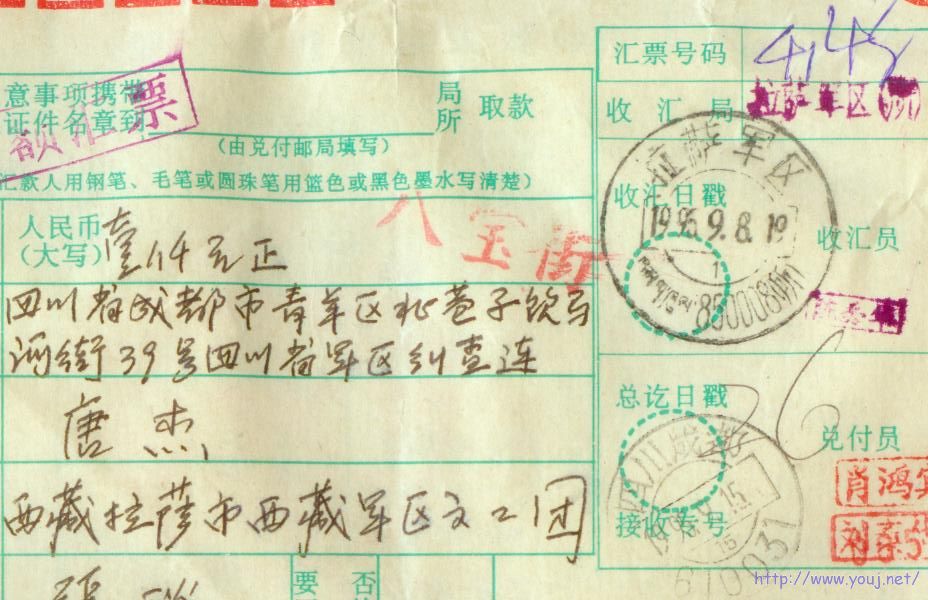 汇票号码
4148
意事项携带
证件名章到
局
所
取款
额汇票
收汇局
拉萨军区
(由兑付邮局填写)
汇款人用钢笔、毛笔或圆珠笔用蓝色或黑色墨水写清楚)
拉萨军区
收汇日戳
1995.9.8.19
收汇员
人民币
(大写)
壹佰元正
八宝街
85000080
四川省成都市青羊区北巷子饮马
河街39号四川省军区纠查连
总讫日戳
唐杰
兑付员
四川成都
肖鸿宾
西藏拉萨市西藏军区文工团
接收专号
15
16
610031
要
否
http://www.youj.net/